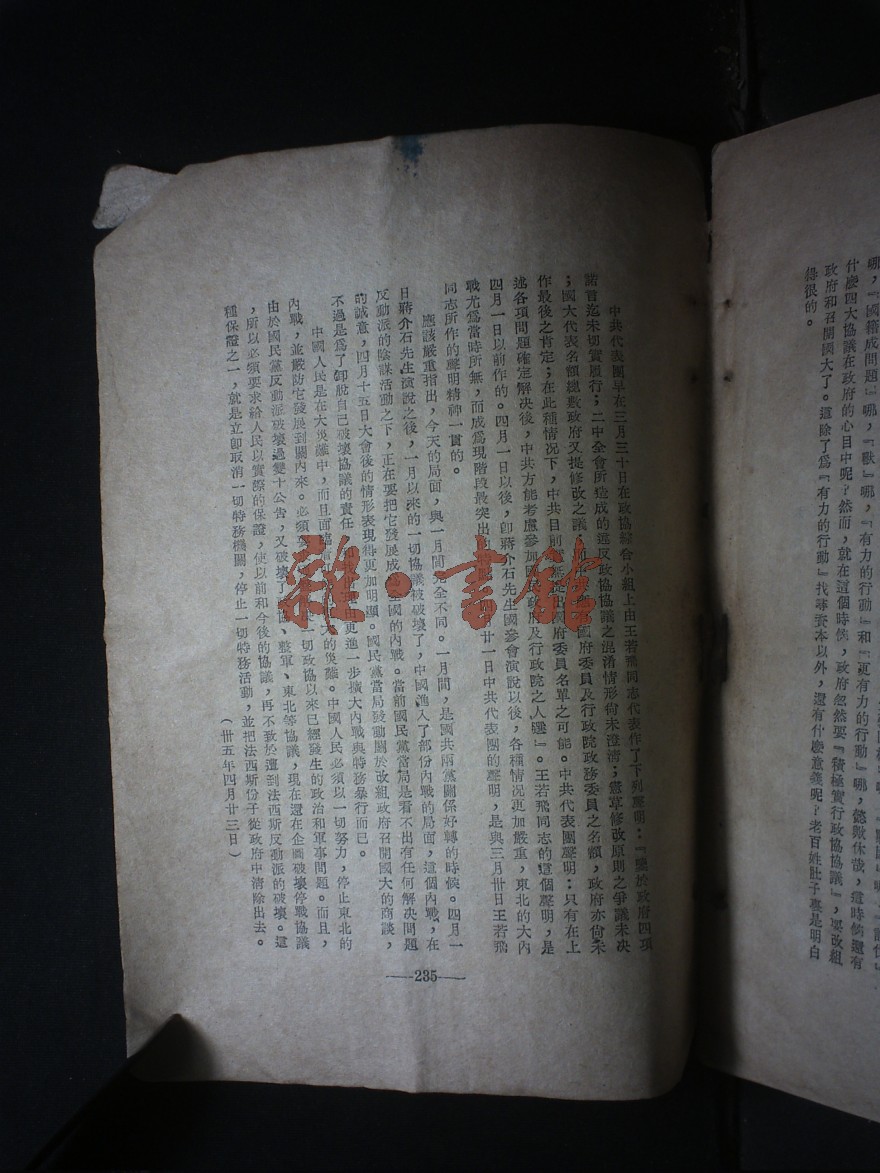 哪，『國籍成問題』哪，『獸』哪，『有力的行動』和『更有力的行動』哪，休哉，這時候還有
什麼四大協議在政府的心目中呢？然而，就在這個時候，政府忽然要『積極實行政協協議』，要改組
政府和召開國大了。這除了爲『有力的行動』找尋資本以外，還有什麼意義呢？老百姓肚子裏是明白
得很的。
中共代表團早在三月三十日在政協綜合小組上由王若飛同志代表作了下列聲明：『鑒於政府四項
諾言迄未切實履行；二中全會所造成的違反政協協議之混淆情形尚未澄清；憲草修改原則之爭議未決
；國大代表名額總數政府又提修改之議，國府委員及行政院政務委員之名額，政府亦尚未
作最後之肯定；在此種情況下，中共目前提出國府委員名單之可能。中共代表團聲明：只有在上
述各項問題確定解決後，中共方能考慮參加國民政府及行政院之人選』。王若飛同志的這個聲明，是
四月一日以前作的。四月一日以後，卽蔣介石先生國參會演說以後，各種情況更加嚴重，東北的大內
戰尤爲當時所無，而成爲現階段最突出廿一日中共代表團的聲明，是與三月卅日王若飛
同志所作的聲明精神一貫的。
應該嚴重指出，今天的局面，與一月間完全不同。一月間，是國共兩黨關係好轉的時候。四月一
日蔣介石先生演說之後，一月以來的一切協議被破壞了，中國進入了部份內戰的局面，這個內戰，在
反動派的陰謀活動之下，正在要把它發展成全國的內戰。當前國民黨當局是看不出有任何解決問題
的誠意，四月十五日大會後的情形表現得更加明顯。國民黨當局發動關於改組政府召開國大的商談，
不過是爲了卸脫自己破壞協議的責任，更進一步擴大內戰與特務暴行而已。
中國人民是在大災難中，而且面臨大的災難。中國人民必須以一切努力，停止東北的
內戰，並嚴防它發展到關內來。必須一切政協以來已經發生的政治和軍事問題。而且，
由於國民黨反動派破壞過雙十公告，又破壞了協、整軍、東北等協議，現在還在企圖破壞停戰協議
，所以必須要求給人民以實際的保證，使以前和今後的協議，再不致於遭到法西斯反動派的破壞。這
種保證之一，就是立卽取消一切特務機關，停止一切特務活動，並把法西斯份子從政府中清除出去。
（卅五年四月廿三日）
—235—
雜·書館